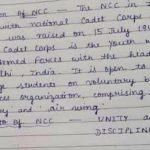 of NCC — The NCC in I
with national Cadet Corps
was raised on 15 July 19
Cadet Corps is the youth w
Armed Forces with the head
Delhi, India. It is open to
students on voluntary b
ces organization, comprising
y and ' air wing'
to of NCC — UNITY a
DISCIPLIN